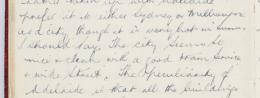 taken up with Adelaide
prefer it to either Sydney or Melbourne
as a city though it is very hot in summer
I should say. The city seems to
nice & clean with a good tram service
& wide streets. The peculiarity of
Adelaide is that all the buildings